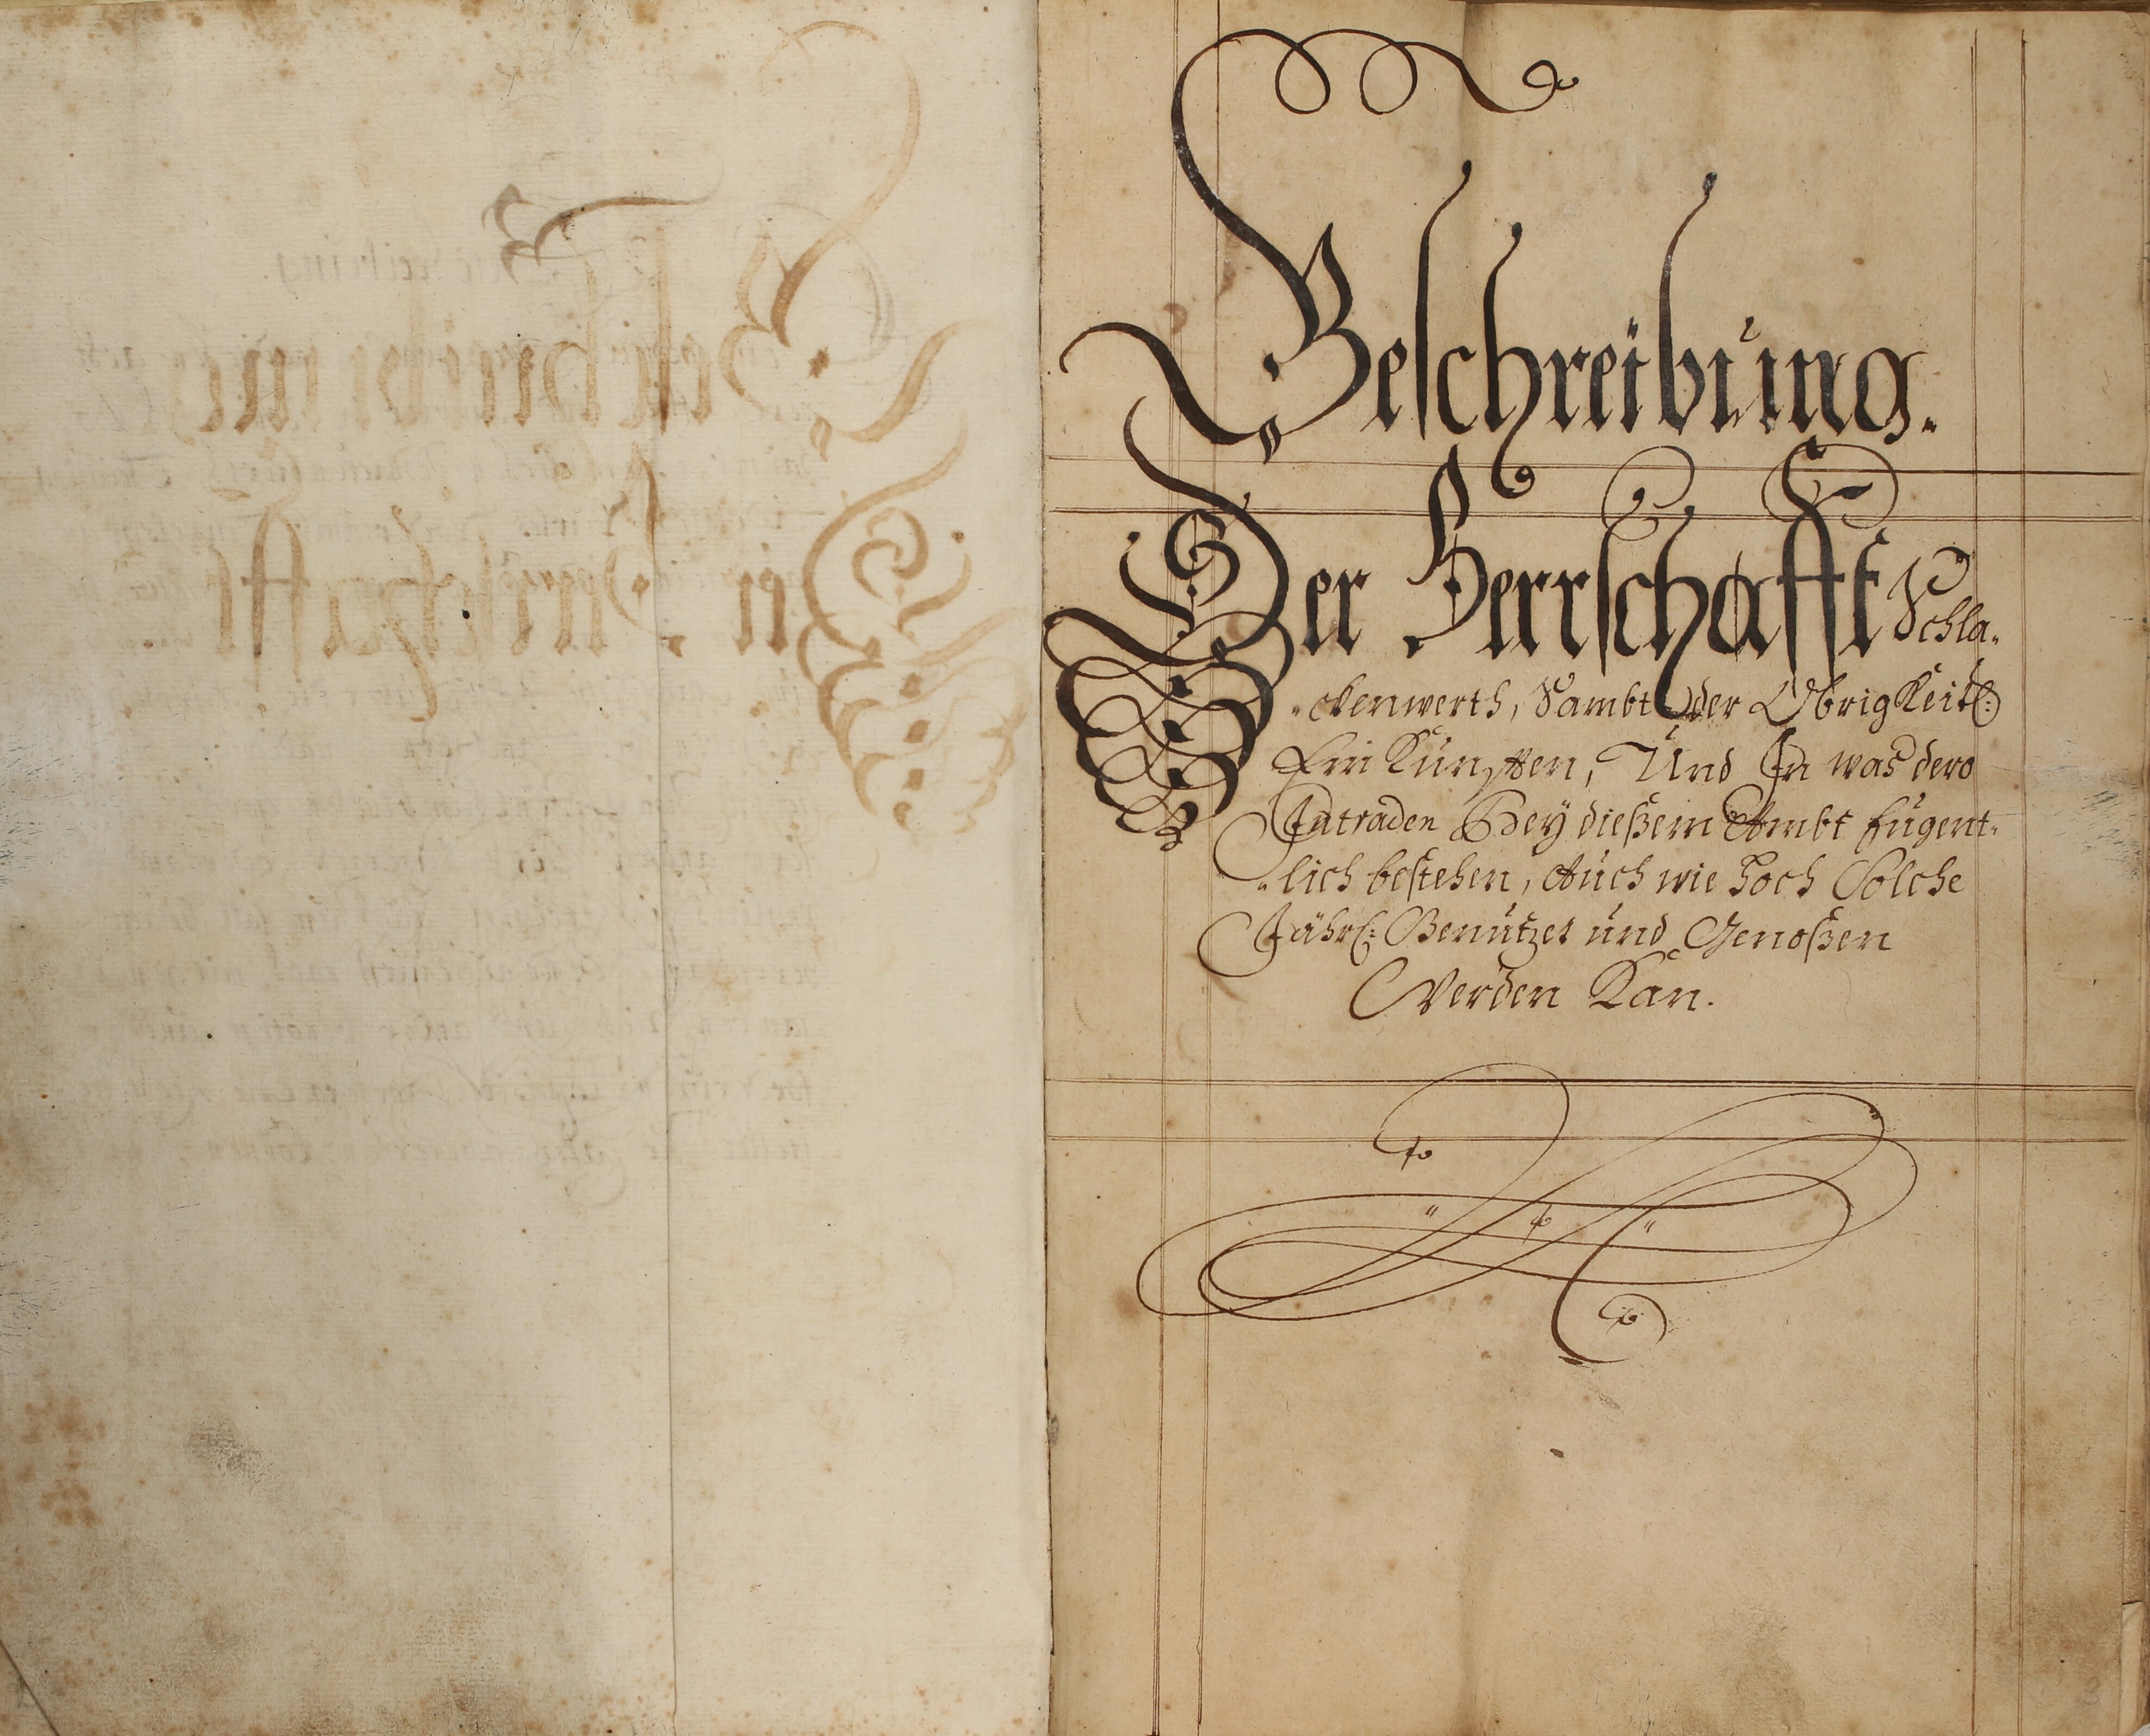 Beschreibung.
Der Herrschafft Schla-
-ckenwerth, Sambt der Obrigkeitl:
Einkünfften, Und In was dero
Intraden Bey dießem Ambt fügent-
-lich bestehen, Auch wie hoch Solche
Jährl: Benützet und Genoßen
Werden Kan.